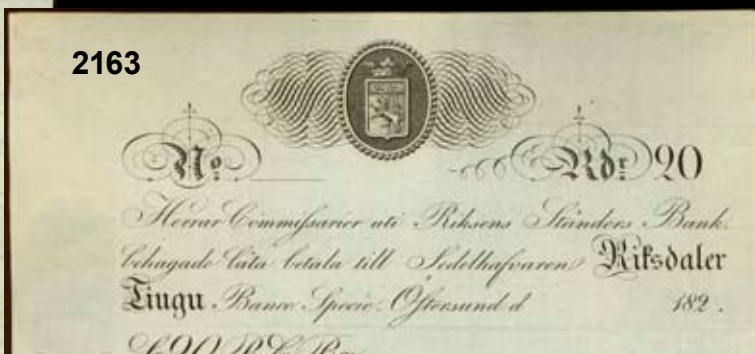 2163
No Rdr 20
Herrar Commissarier uti Riksens Ständers Bank.
behagade låta betala till Sedelhafvaren Riksdaler
Tiugu Banco Specie. Östersund d 182 .